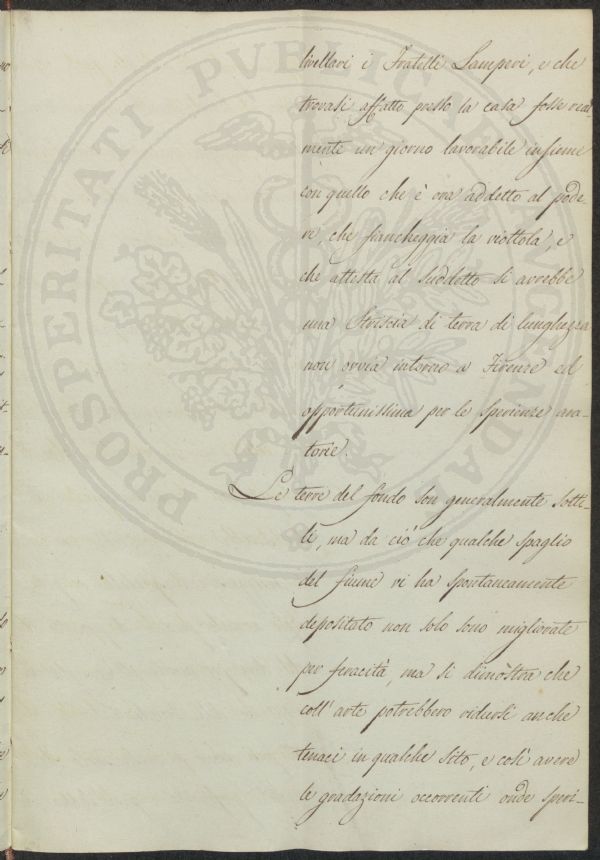 livellari i Fratelli Lamperi, e che
trovasi affatto presso la casa fosse real-
mente un giorno lavorabile insieme
con quello che è ora addetto al pode-
re, che fiancheggia la viottola, e
che attesta al suddetto si avrebbe
una striscia di terra di lunghezza
non ovvia intorno a Firenze ed
opportunissima per le sperienze ara-
torie.
Le terre del fondo son generalmente sotti-
li, ma da ciò che qualche spaglio
del fiume vi ha spontaneamente
depositato non solo sono migliorate
per feracità, ma si dimostra che
coll' arte potrebbero ridursi anche
tenaci in qualche sito, e così avere
le gradazioni occorrenti onde speri-
PROSPERITATI PVBLICAE AVGENDAE